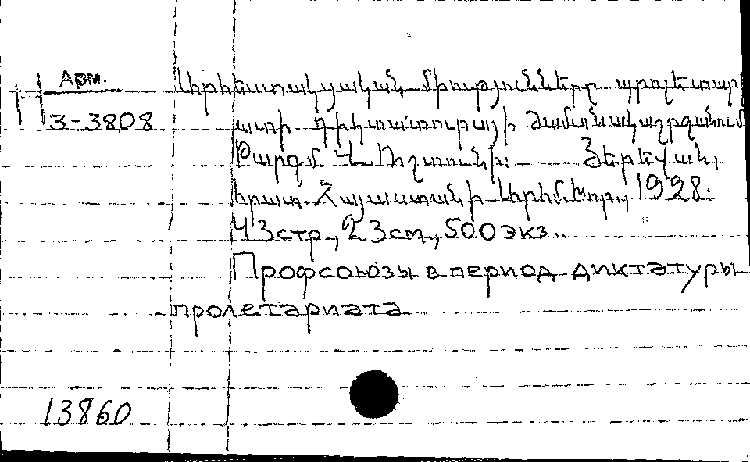 Арм.
3-3808
Արհեստակցական միությունները պրոլետար
ատի դիկտատուրայի ժամանակաշրջանում
Թարգմ. Դ. Ռշտունի. Յերեվան,
հրատ. Հայաստանի Արհմ.խոր., 1928.
43стр., 23см., 500экз.
Профсоюзы в период диктатуры
пролетариата
13860